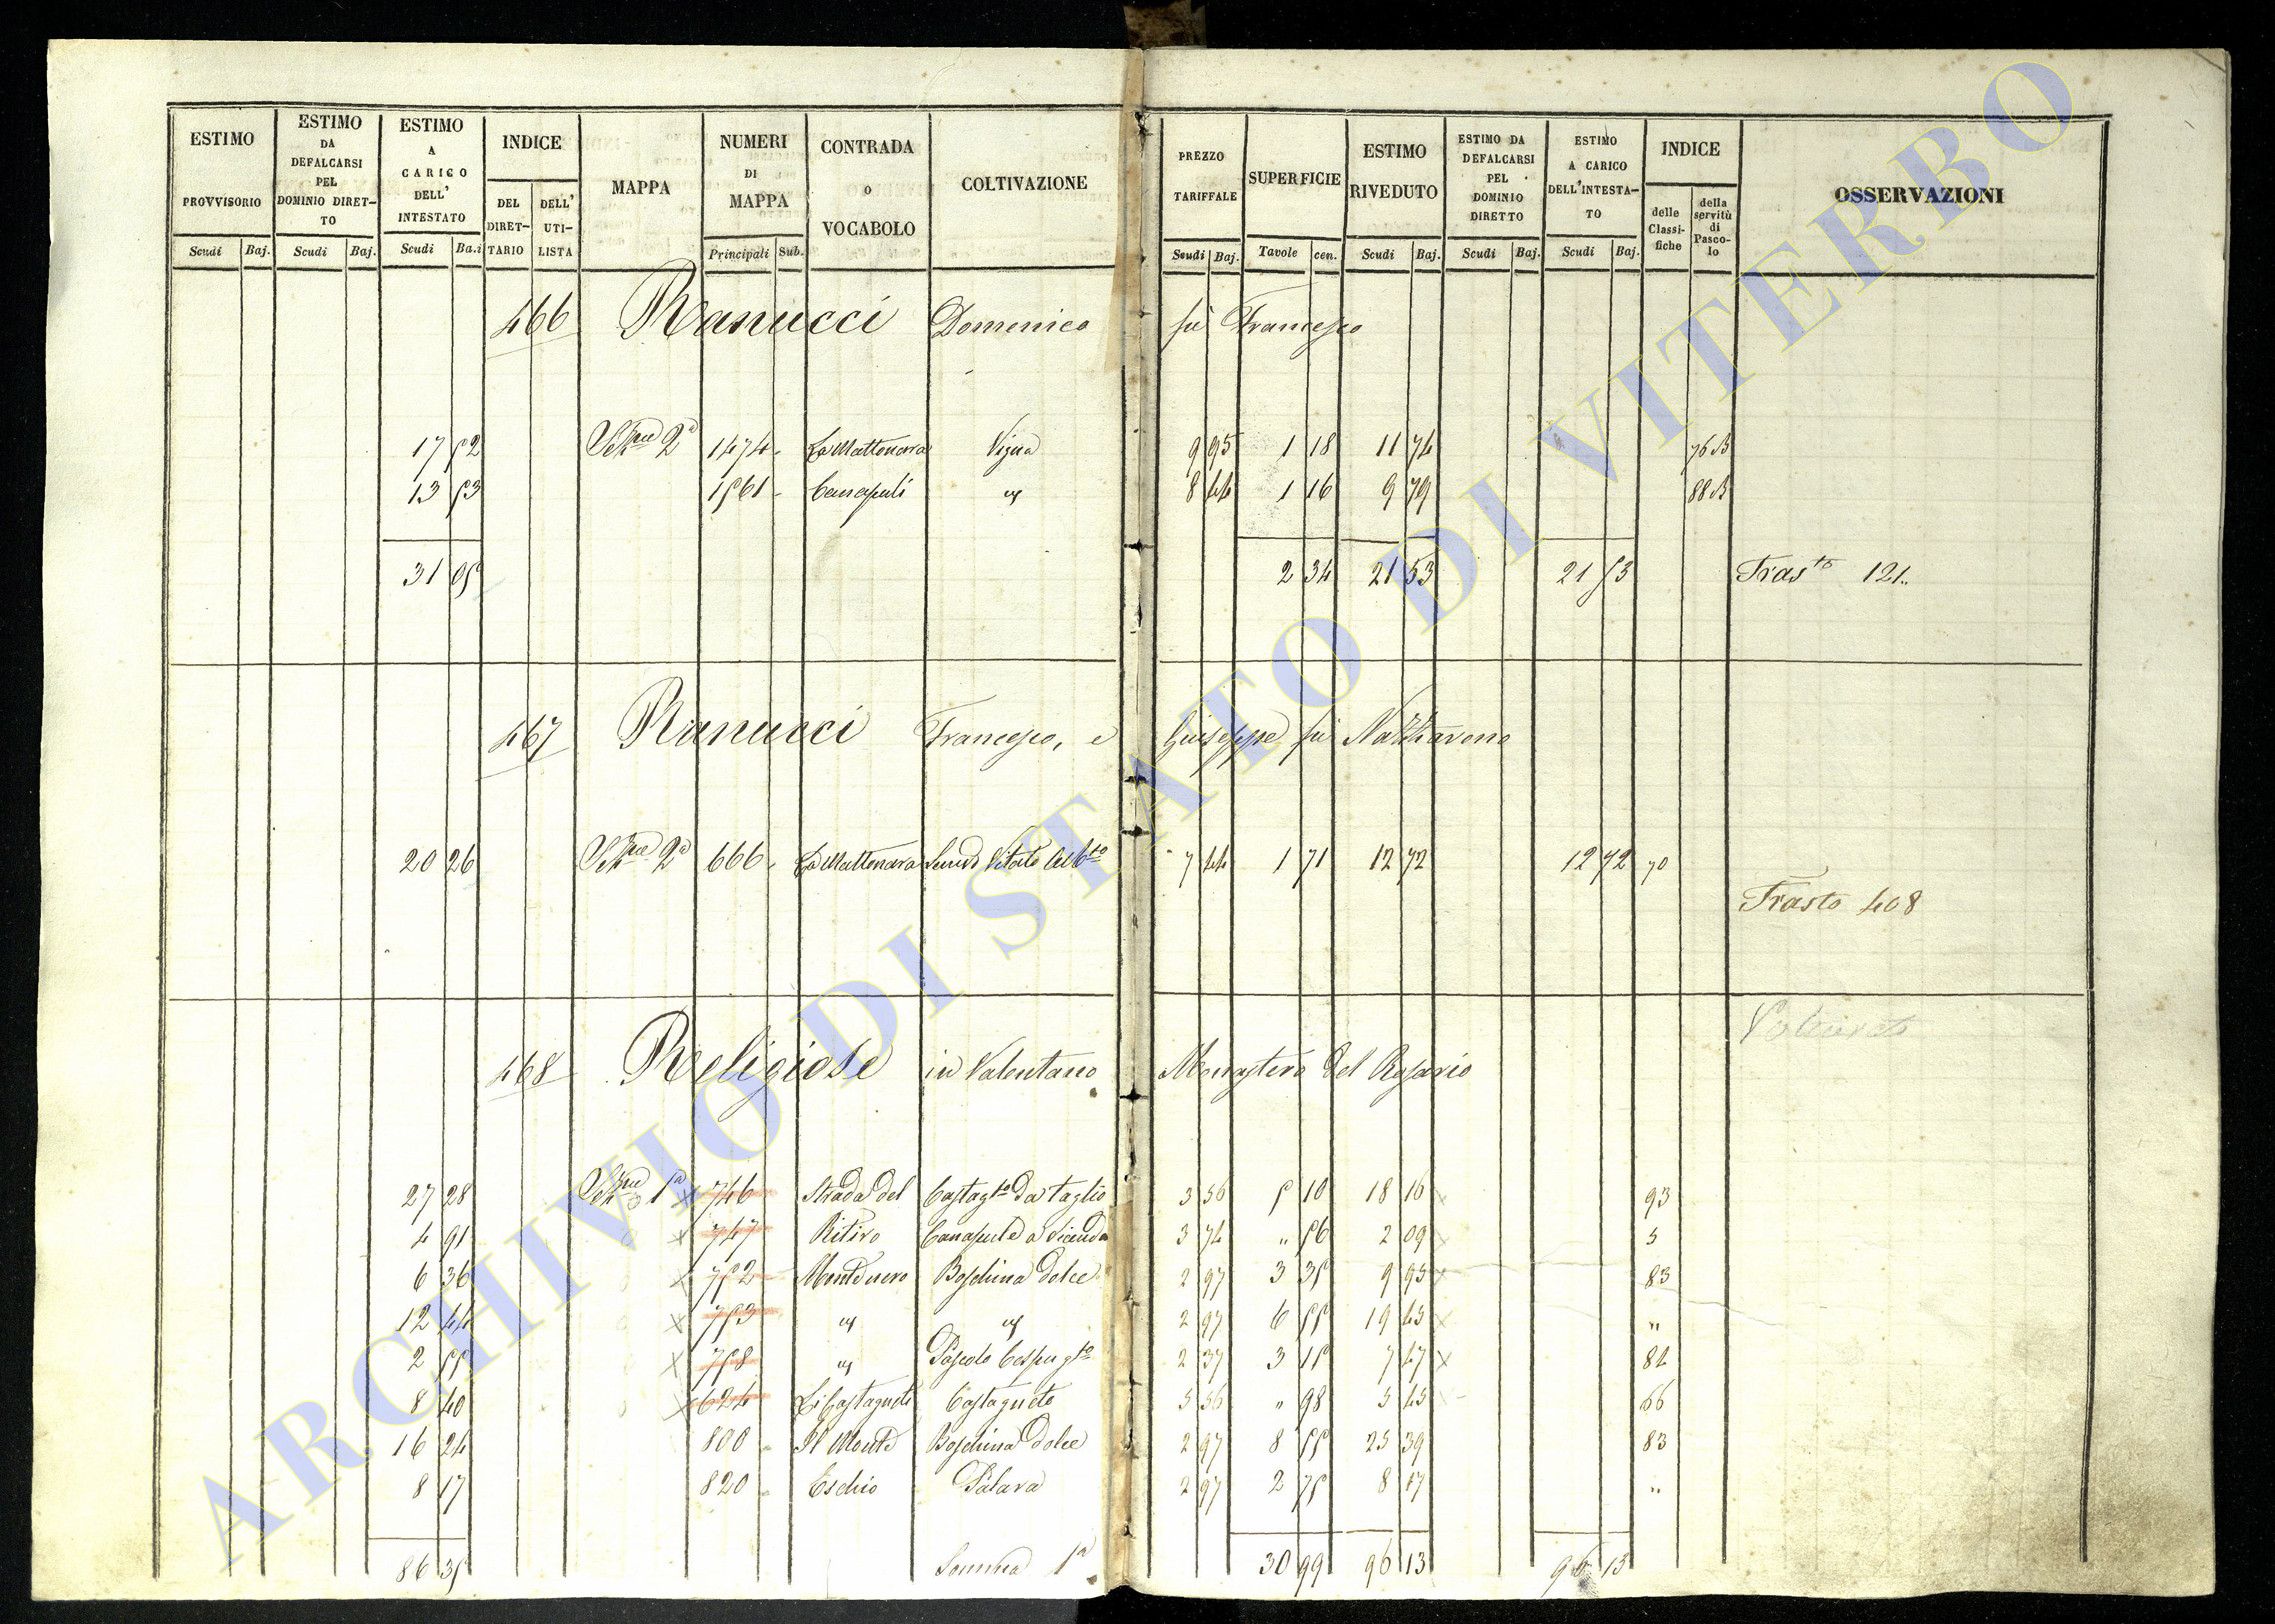 ESTIMO PROVVISORIO Scudi Baj.
ESTIMO DA DEFALCARSI PEL DOMINIO DIRETTO Scudi Baj.
ESTIMO A CARICO DELL' INTESTATO Scudi Ba.i
INDICE DEL DIRETTARIO DELL' UTILISTA
MAPPA
NUMERI DI MAPPA Principali Sub.
CONTRADA o VOCABOLO
COLTIVAZIONE
PREZZO TARIFFALE Scudi Baj.
SUPERFICIE Tavole cen.
ESTIMO RIVEDUTO Scudi Baj.
ESTIMO DA DEFALCARSI PEL DOMINIO DIRETTO Scudi Baj.
ESTIMO A CARICO DELL'INTESTATO Scudi Baj.
INDICE delle Classifiche della servitù di Pascolo
OSSERVAZIONI
466 Ranucci Domenico fù Francesco
17 52 Sez.ne 2a 1474 La Mattonara Vigna 9 95 1 18 11 74 76 B
13 53 1561 Canapuli id 8 44 1 16 9 79 88 B
31 05 2 34 21 53 21 53 Trasto 121..
467 Ranucci Francesco, e Giuseppe fù Nazzareno
20 26 Sez.ne 2a 666 La Mattonara 7 44 1 71 12 72 12 72 70
Trasto 408
468 Religiose in Valentano Monastero del Rosario
27 28 Sez.ne 1a 746 Strada del Castagto da taglio 3 56 5 10 18 16 93
4 91 747 Ritiro Canapule a vicenda 3 74 " 56 2 09 5
6 36 752 Monte nero Boschina dolce 2 97 3 35 9 95 83
12 44 753 id id 2 97 6 55 19 45 "
2 55 758 id Pascolo Cespugto 2 37 3 15 7 47 84
8 40 624 Li Castagneti Castagneto 5 56 " 98 5 45 66
16 24 800 Il Monte Boschina dolce 2 97 8 55 25 39 83
8 17 820 Eschio Palara 2 97 2 75 8 17 "
86 35 Somma 1a 30 99 96 13 96 13
ARCHIVIO DI STATO DI VITERBO